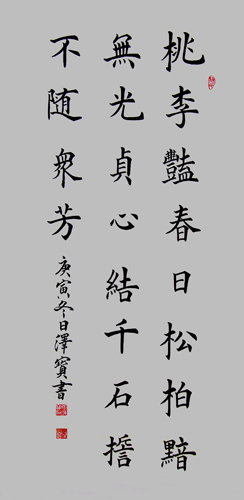 桃李豔春日松柏黯
無光貞心結千石擔
不随衆芳
庚寅冬日澤寶書